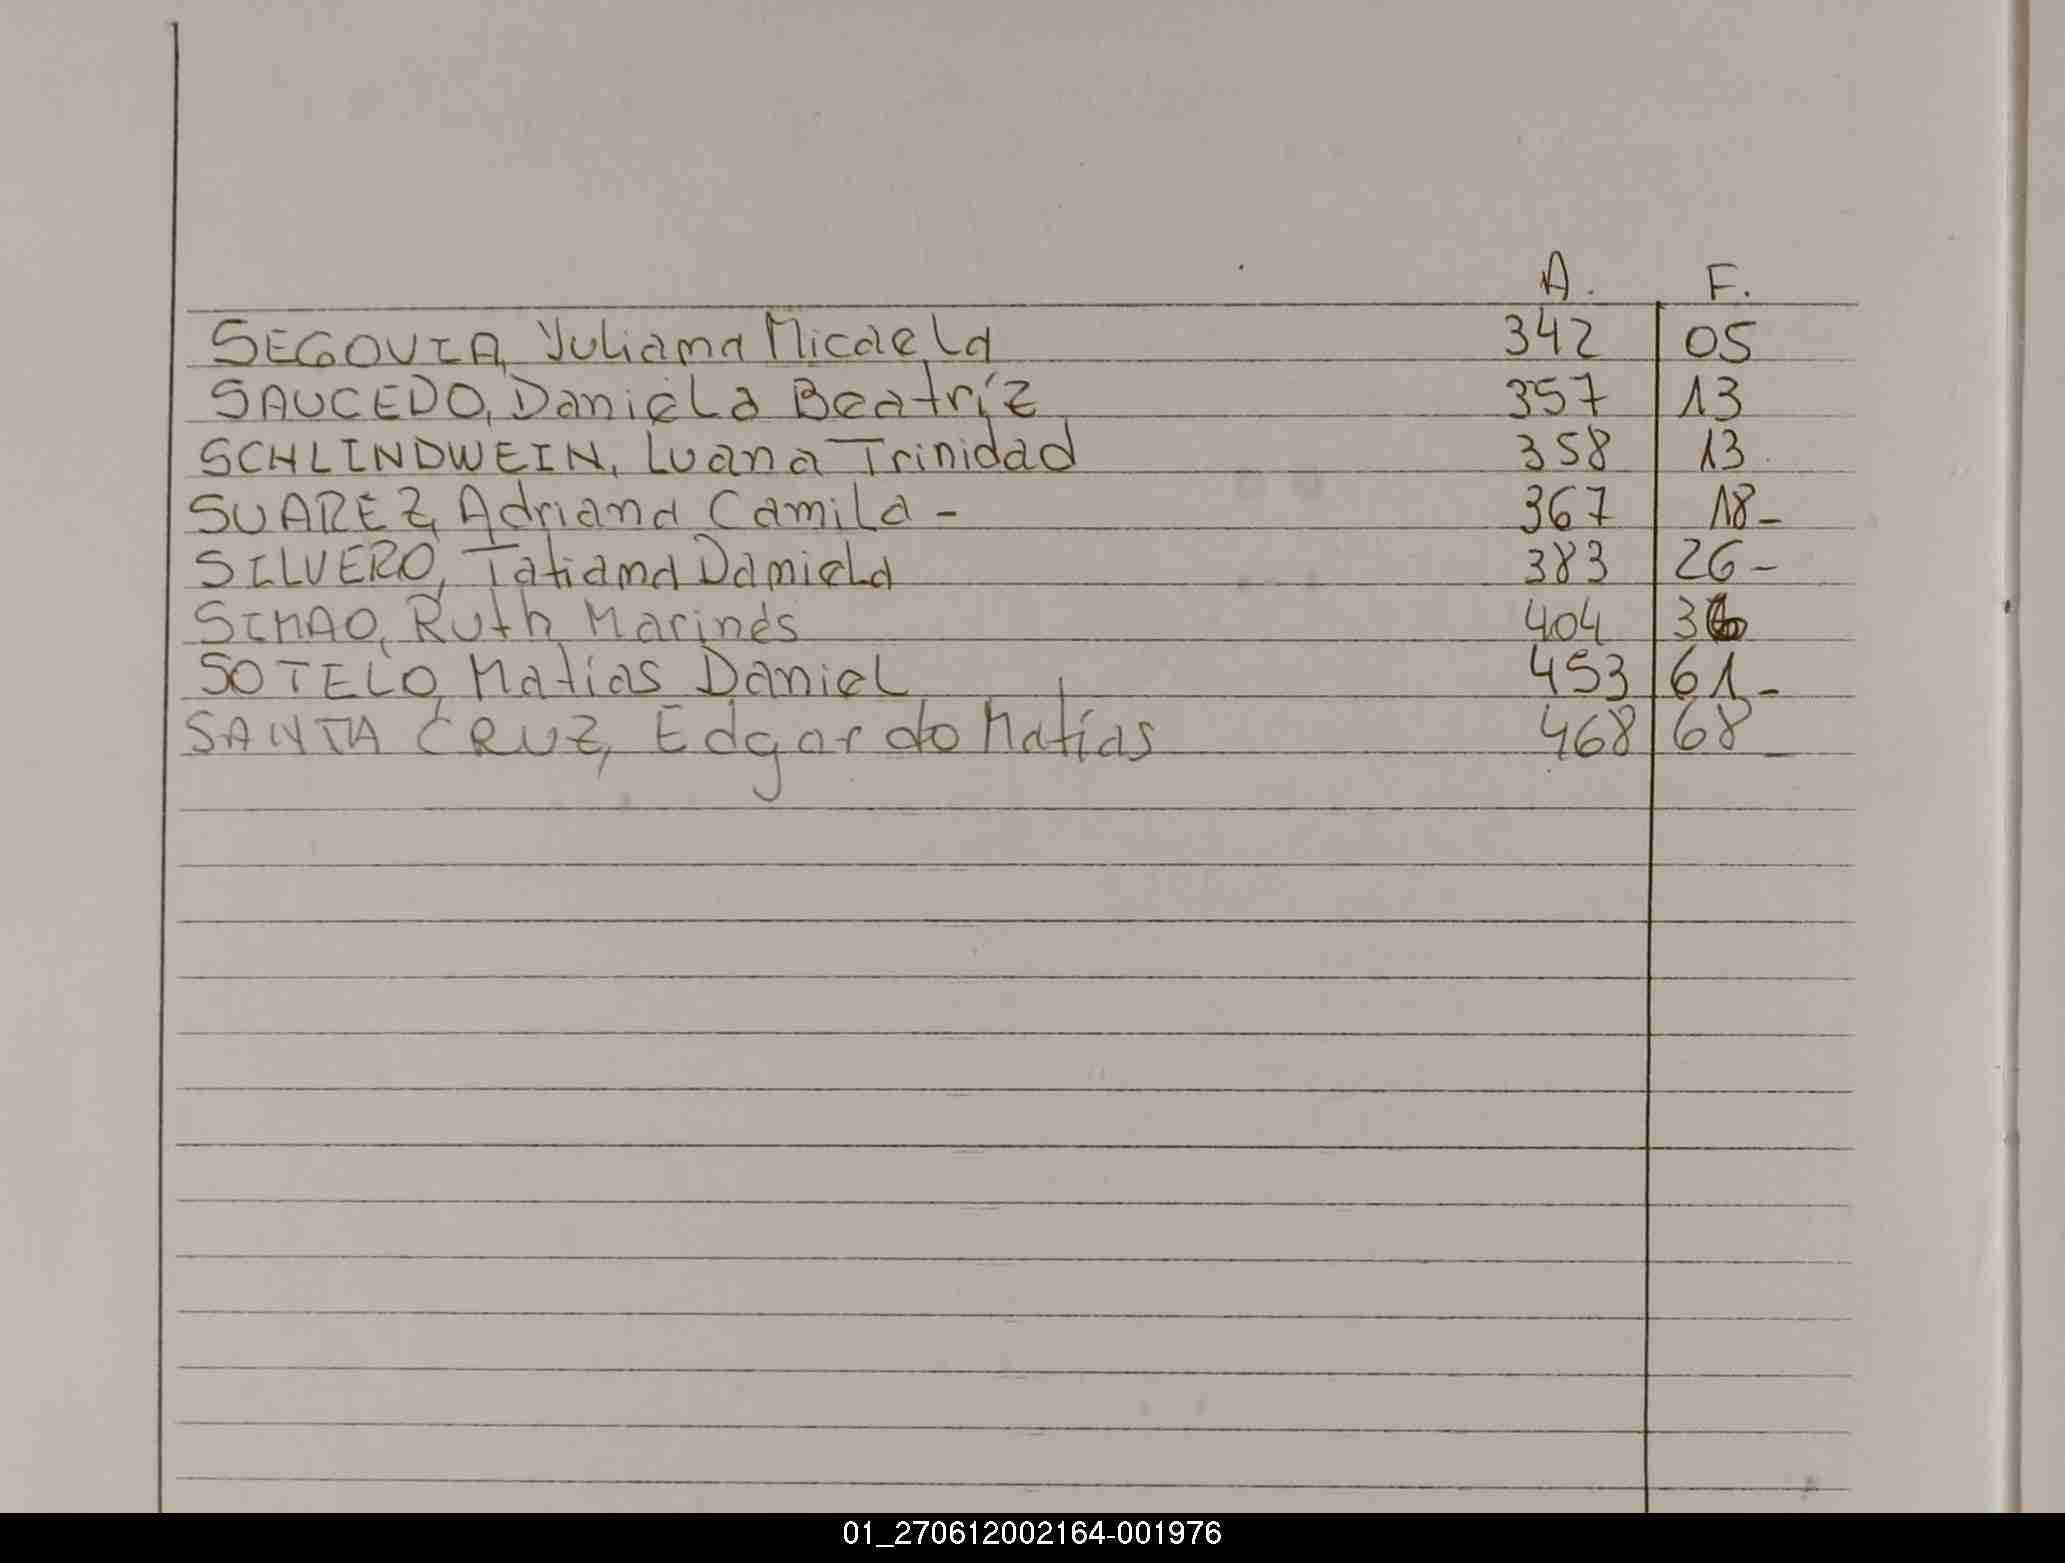 A. F.
SEGOVIA, Yuliana Micaela 342 05
SAUCEDO, Daniela Beatríz 357 13
SCHLINDWEIN, Luana Trinidad 358 13
SUAREZ, Adriana Camila - 367 18-
SILVERO, Tatiana Daniela 383 26-
SIMAO, Ruth Marinés 404
SOTELO, Matias Daniel 453 61-
SANTA CRUZ, Edgardo Matías 468 68-
01_270612002164-001976